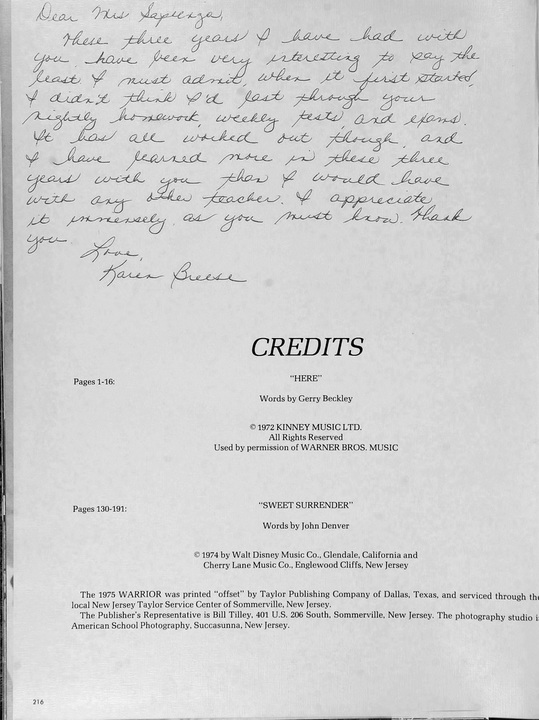 Dear Mrs Sapienza,
These three years I have had with
you have been very interesting to say the
least. I must admit, when it first started,
I didn't think I'd last through your
nightly homework, weekly tests and exams.
It has all worked out though, and
I have learned more in these three
years with you than I would have
with any other teacher. I appreciate
it immensely as you must know. Thank
you.
Love,
Karen Breese
CREDITS
Pages 1-16:
"HERE"
Words by Gerry Beckley
© 1972 KINNEY MUSIC LTD.
All Rights Reserved
Used by permission of WARNER BROS. MUSIC
Pages 130-191:
"SWEET SURRENDER"
Words by John Denver
© 1974 by Walt Disney Music Co., Glendale, California and
Cherry Lane Music Co., Englewood Cliffs, New Jersey
The 1975 WARRIOR was printed "offset" by Taylor Publishing Company of Dallas, Texas, and serviced through the
local New Jersey Taylor Service Center of Sommerville, New Jersey.
The Publisher's Representative is Bill Tilley, 401 U.S. 206 South, Sommerville, New Jersey. The photography studio i
American School Photography, Succasunna, New Jersey.
216